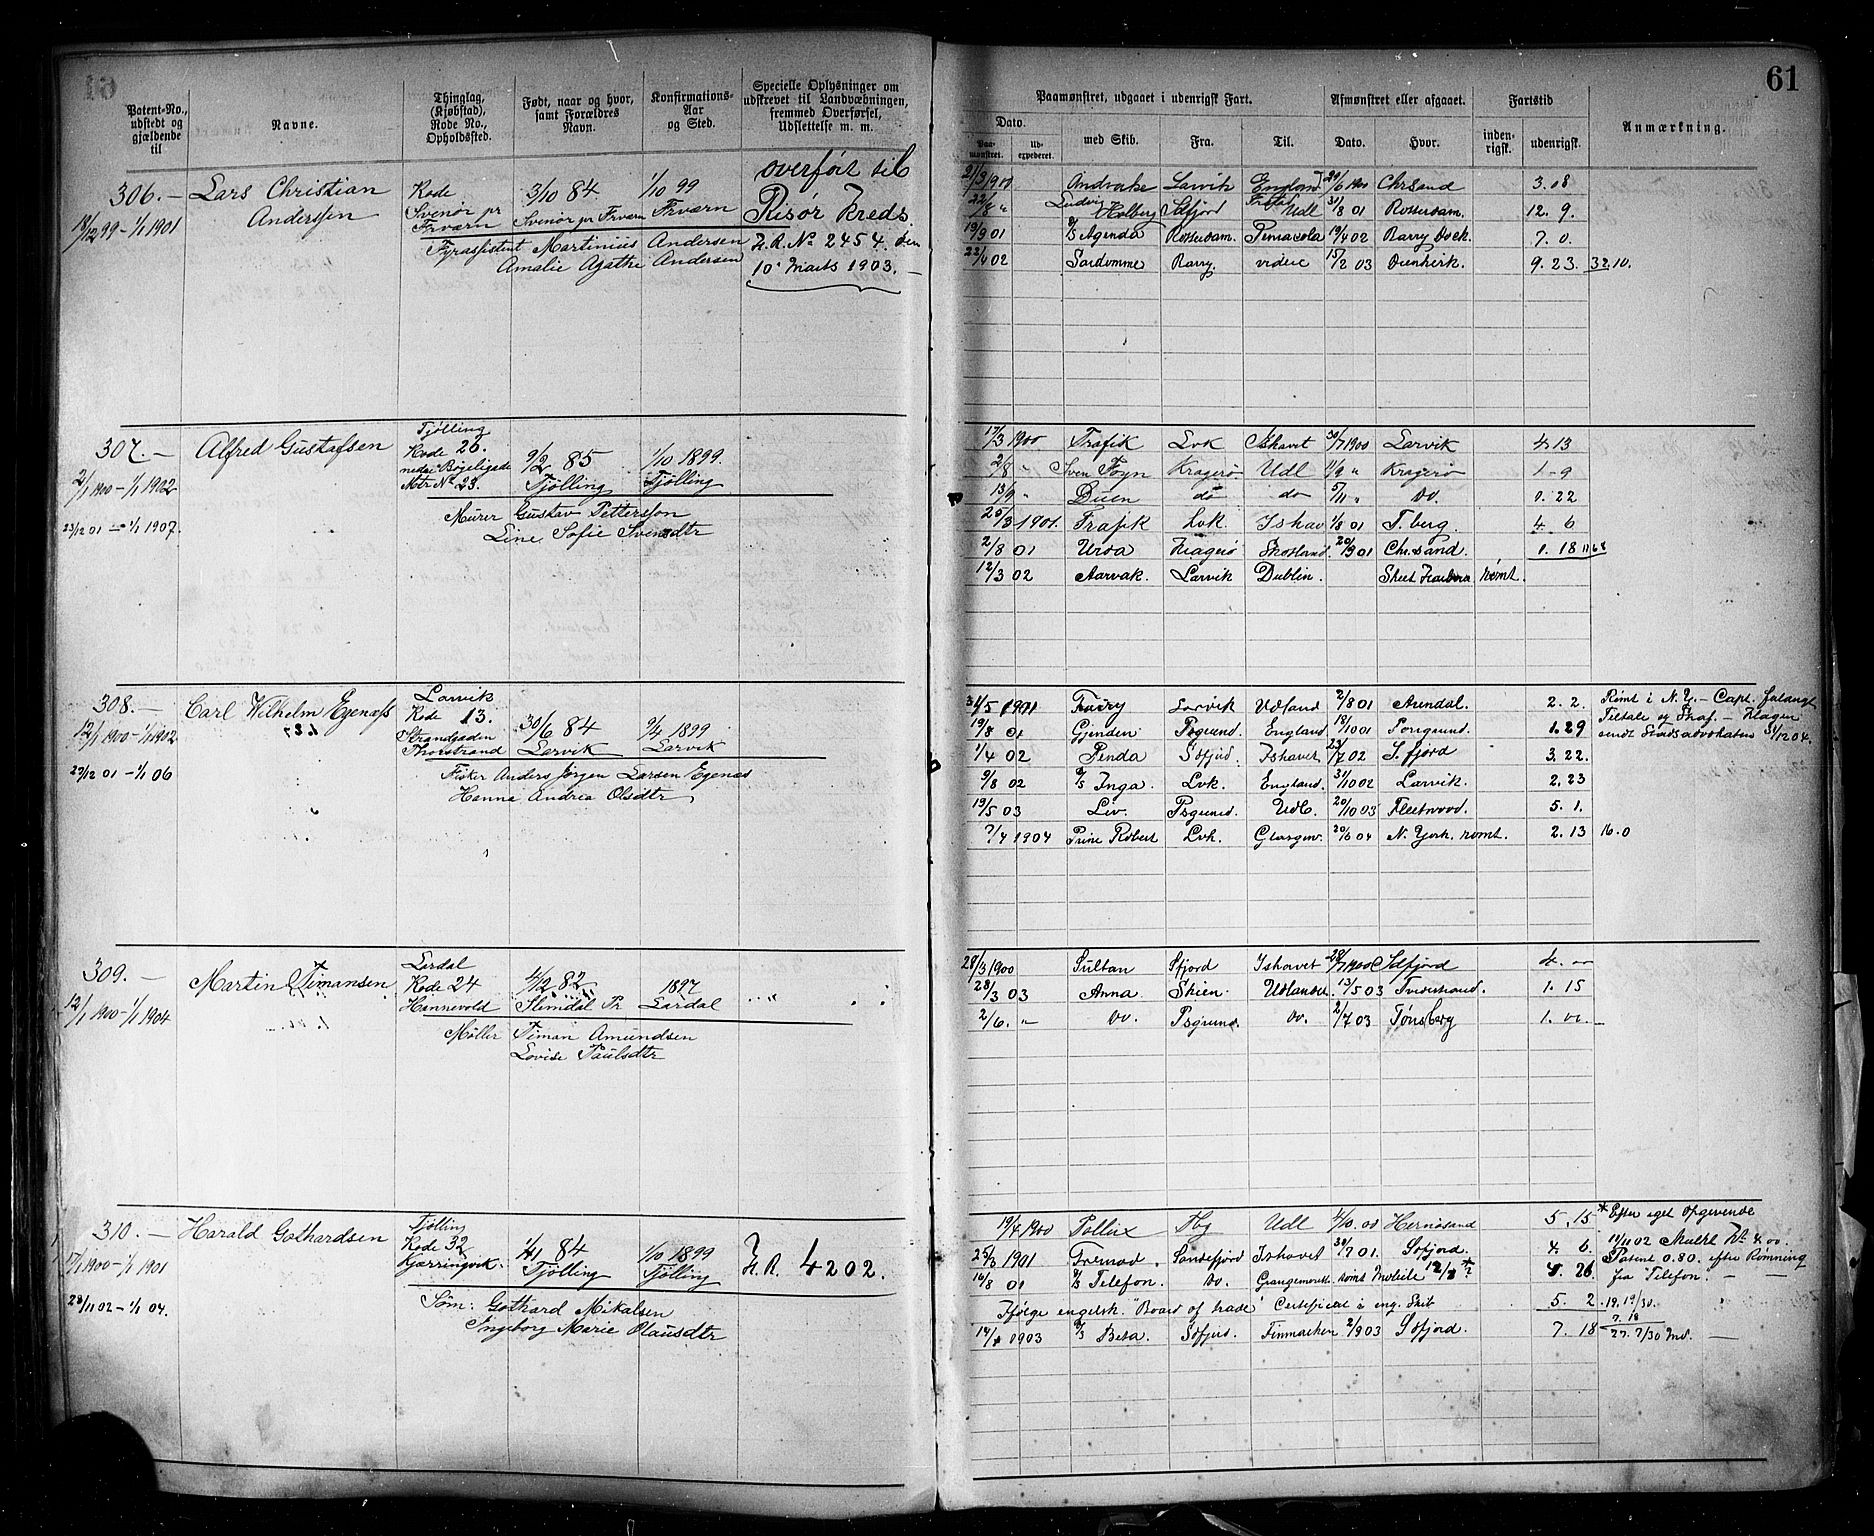 61
Patent-No., udstedt og gjældende til
Navne.
Thinglag, (Kjøbstad), Rode No., Opholdssted.
Født, naar og hvor, samt Forældres Navn.
Konfirmations-Aar og Sted.
Specielle Oplysninger om udskrevet til Landværnbningen, fremmed Overførsel, Udslettelse m. m.
Paamønstret, udgaaet i udenrigsk Fart.
Dato.
Paa-mønstret.
Ud-expederet.
med Skib.
Fra.
Til.
Afmønstret eller afgaaet.
Dato.
Hvor.
Fartstid
inden-rigsk.
udenrigsk.
Anmærkning.
306. — Lars Christian Anderssen
18/12 99 – 1/1 1901
Rode Svenør pr Frværn
3/10 84 Svenør pr Frværn
1/10 99 Frværn
Fyrassistent Martinius Andersen
Amalie Agathe Andersen
overført til Risør Kreds. H.R. No 2454. den 10' Marts 1903. —
21/3 1900 Andvake Larvik England 29/6 1900 Chrsand 3. 18
22/8 " Ludvig Holberg Sdfjord Udl 31/8 01 Rotterdam. 12. 9.
19/9 01 S/S Agenda Rotterdam. Pensacola 19/4 02 Barry Dock. 7. 0.
22/4 02 Sardomme Barry. videre 15/2 03 Dunkirk. 9. 23. 32.10.
307. — Alfred Gustafsen
2/1 1900 – 1/1 1902
23/12 01 – 1/1 1907.
Tjølling Rode 26. nedre Bøgeligade Mtr No 23.
9/2 85 Tjølling
1/10 1899. Tjølling
Murer Gustav Pettersson
Line Sofie Svensdtr
17/3 1900 Trafik Lvk Ishavet 30/7 1900 Larvik 4. 13
2/8 " Sven Foyn Kragerø Udl 1/9 " Kragerø 1. 9
13/9 " Duen do do 5/11 " Do. 0. 22
25/3 1901. Trafik Lvk Ishav 1/8 01 T. berg. 4. 6
2/8 01 Uroa Kragerø Skotland. 20/9 01 Chr.sand. 1. 18
12/3 02 Aarvak. Larvik Dublin. rømt.
308. — Carl Wilhelm Egenæss
12/1 1900 – 1/1 1902
23/12 01 – 1/1 06
Larvik Rode 13. Strandgaden Thorstrand
30/6 84 Larvik
9/4 1899 Larvik
Fisker Anders Jørgen Larsen Egenæs
Hanna Andrea Olsdtr
31/5 1901 Larvik Udland 2/8 01 Arendal. 2. 2.
19/8 01 Gjenden Psgrund. England 18/10 01 Porsgrund. 1. 29
1/4 02 Penda Sdfjrd. Ishavet 23/7 02 S. fjord 3. 22.
9/8 02 S/S Inga Lvk. England. 31/10 02 Larvik. 2. 23
19/5 03 Liv. Psgrund. Udl. 20/10 03 Fleetwood. 5. 1.
7/4 1904 Prins Robert Lvk. Glasgow. 20/6 04 N. York. rømt. 2. 13 16.0
Rømt i N.Y. – Capt. forlangt Tiltale og Straf. – Klagen sendt Stadsadvokaten 5/12 04.
309. — Martin Timansen
12/1 1900 – 1/1 1904
Lardal Rode 24 Hannevold
4/12 82 Slemdal Pr
1897 Lardal
Møller Timan Amundsen
Lovise Paulsdtr
28/3 1900 Sultan Sfjord Ishavet 28/7 1900 Sdfjord 4. 00
28/3 03 Anna Skien Udlandet 13/5 03 Tvedestrand. 1. 15
2/6. " Do. Psgrund. Do. 2/7 03 Tønsberg 1. 00.
310. — Harald Gothardsen
17/1 1900 – 1/1 1901
28/11 02 – 1/1 04.
Tjølling Rode 32 Kjærringvik.
1/1 84 Tjølling
1/10 1899 Tjølling
H. R. 4202.
Søm: Gothard Mikalsen
Ingeborg Marie Olausdtr
19/4 1900 Pollux Tbg Udl 4/10. 00 Hernøsand 5. 15
25/3 1901 Fremad. Sandefjord Ishavet 30/7 01. Sdfjord. 4. 6.
16/8 01 S/S Telefon. Do. Grangemouth rømt Mobile 12/2 *? 4. 26
Ifølge engelsk. "Board of trade" Certificat i eng. Skib 5. 2 19. 19/30.
14/4 1903 S/S Beta. Sdfjrd. Finmarken 2/9 03 Sdfjord. 7. 18 27. 7/30 Md. —
* Efter eget opgivende 14/11 02 Mulkt Kr 4.00. Patent 0.80. efter Rømning fra "Telefon". —